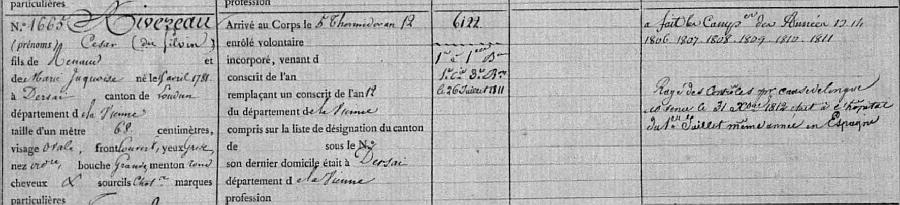 particulières
N.° 1665 Rivereau
(prénoms Cesar (dit Silvin)
fils de Renaud et
de Marie Juquoise né le avril 1781
à Dersai canton de Loudun
département d ela Vienne
taille d'un mètre 68 centimètres,
visage Ovale, front ouvert, yeux Gris
nez bouche Grande menton rond
cheveux & sourcils Chat.ns marques
particulières
profession
Arrivé au Corps le 5 Thermidor an 12
enrôlé volontaire
incorporé, venant d
conscrit de l'an
remplaçant un conscrit de l'an 12
du département de la Vienne
compris sur la liste de désignation du canton
de sous le N.°
son dernier domicile était à Dersai
département d ela Vienne
profession
6122
1re Cie 1er Bon
1re Cie 3e Bon
le 26 Juillet 1811
a fait les Camp.en des Années 13 14
1806 1807 1808 1809 1810 1811
Rayé des Contrôles pr cause de longue
le 31 Xbre 1812 était à l'hôpital
du 1er Juillet même année en Espagne